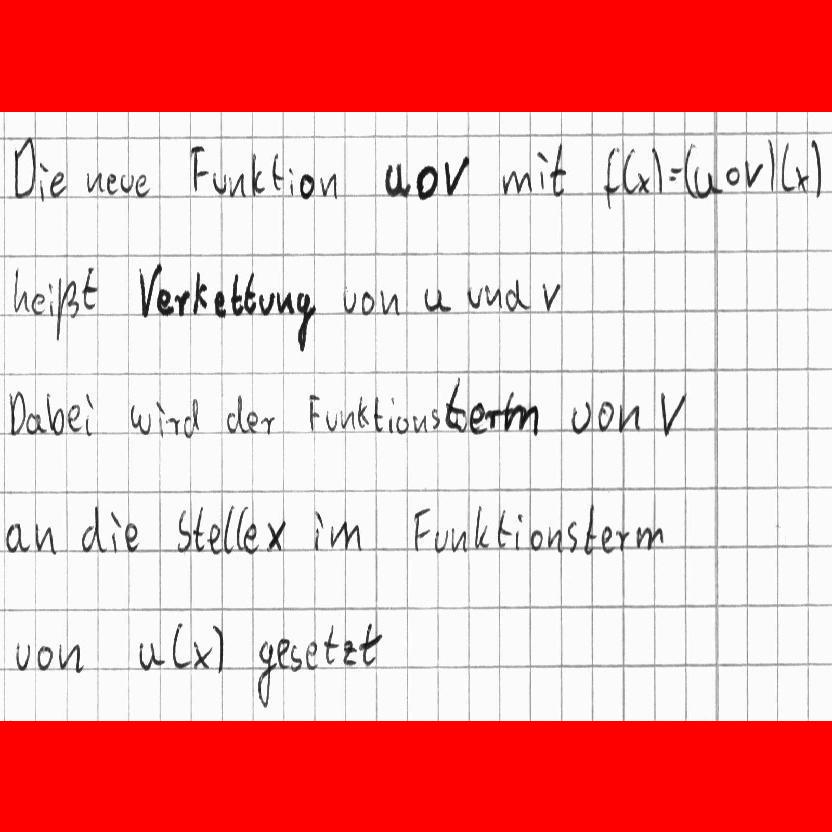 Die neue Funktion uov mit f(x)=(uov)(x)
heißt Verkettung von u und v
Dabei wird der Funktionsterm von V
an die Stelle x im Funktionsterm
von u(x) gesetzt